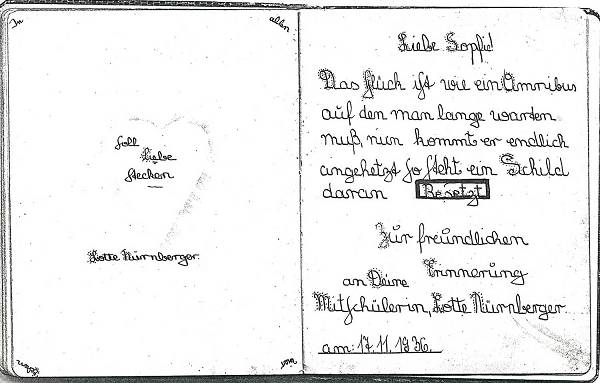 In allen
vier Ecken
soll
Liebe
stecken
Lotte Nürnberger.
Liebe Sopfi!
Das Glück ist wie ein Omnibus
auf den man lange warten
muß, nun kommt er endlich
angehetzt so steht ein Schild
daran Besetzt
Zur freundlichen
Erinnerung
an Deine
Mitschülerin, Lotte Nürnberger.
am: 17.11.1936.